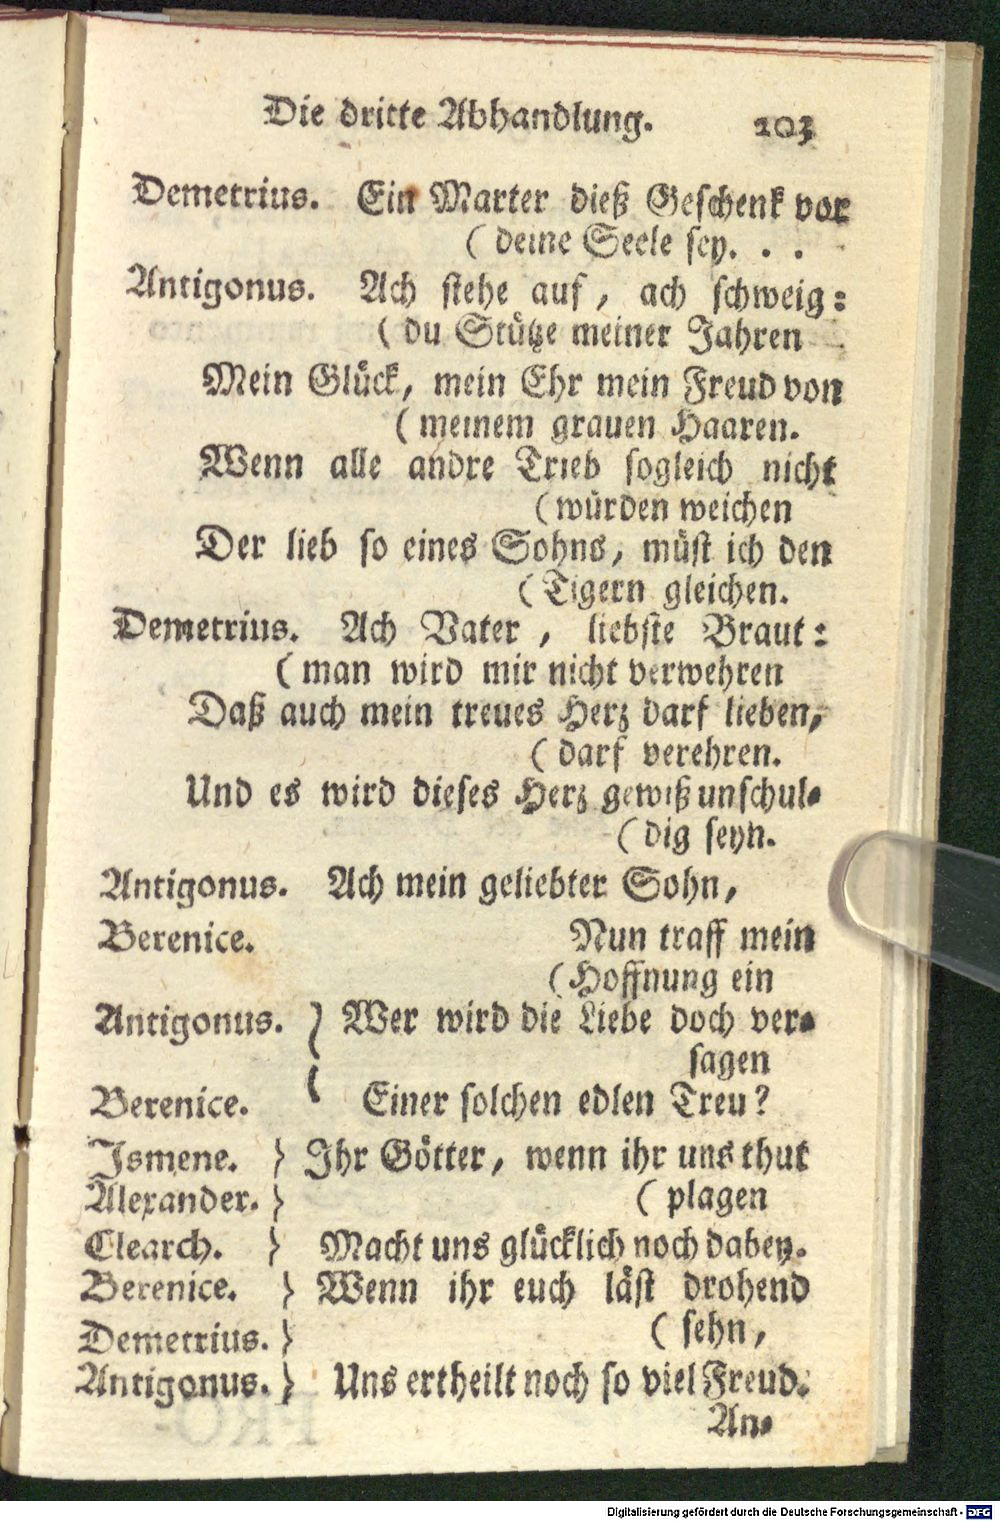 Die dritte Abhandlung. 103
Demetrius. Ein Marter dieß Geschenk vor
( deine Seele sey. . .
Antigonus. Ach stehe auf, ach schweig:
( du Stütze meiner Jahren
Mein Glück, mein Ehr mein Freud von
( meinem grauen Haaren.
Wenn alle andre Trieb sogleich nicht
( würden weichen
Der lieb so eines Sohns, müst ich den
( Tigern gleichen.
Demetrius. Ach Vater, liebste Braut:
( man wird mir nicht verwehren
Daß auch mein treues Herz darf lieben,
( darf verehren.
Und es wird dieses Herz gewiß unschul-
( dig seyn.
Antigonus. Ach mein geliebter Sohn,
Berenice. Nun traff mein
( Hoffnung ein
Antigonus. ) Wer wird die Liebe doch ver-
sagen
Berenice. ( Einer solchen edlen Treu?
Ismene. } Ihr Götter, wenn ihr uns thut
Alexander. } ( plagen
Clearch. } Macht uns glücklich noch dabey.
Berenice. } Wenn ihr euch läst drohend
Demetrius. } ( sehn,
Antigonus. } Uns ertheilt noch so viel Freud.
An-
Digitalisierung gefördert durch die Deutsche Forschungsgemeinschaft - DFG